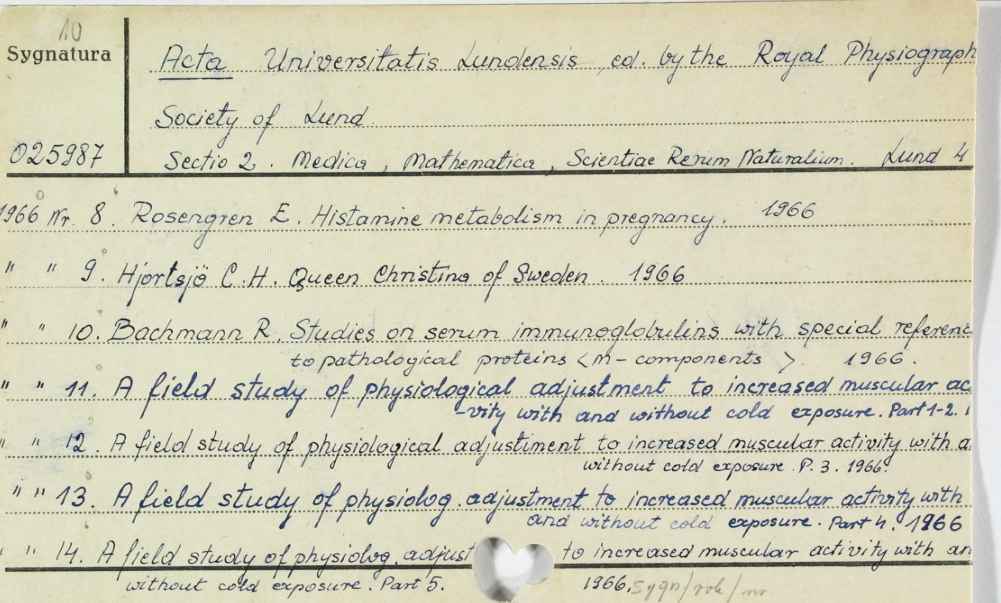 10
Sygnatura
Acta Universitatis Lundensis ed. by the Royal Physiograph
Society of Lund
025987
Sectio 2. Medica, Mathematica, Scientiae Rerum Naturalium. Lund 4
1966 Nr 8. Rosengren E. Histamine metabolism in pregnancy. 1966
" " 9. Hjortsjö C.H. Queen Christina of Sweden. 1966
" " 10. Bachmann R. Studies on serum immunoglobulins with special referenc
to pathological proteins <m-components>. 1966.
" " 11. A field study of physiological adjustment to increased muscular ac
-vity with and without cold exposure. Part 1-2. 1
" " 12. A field study of physiological adjustiment to increased muscular activity with a
without cold exposure. P. 3. 1966.
" " 13. A field study of physiolog. adjustment to increased muscular activity with
and without cold exposure. Part 4. 1966
" " 14. A field study of physiolog. adjust to increased muscular activity with an
without cold exposure. Part 5. 1966. sygn/rok/nr